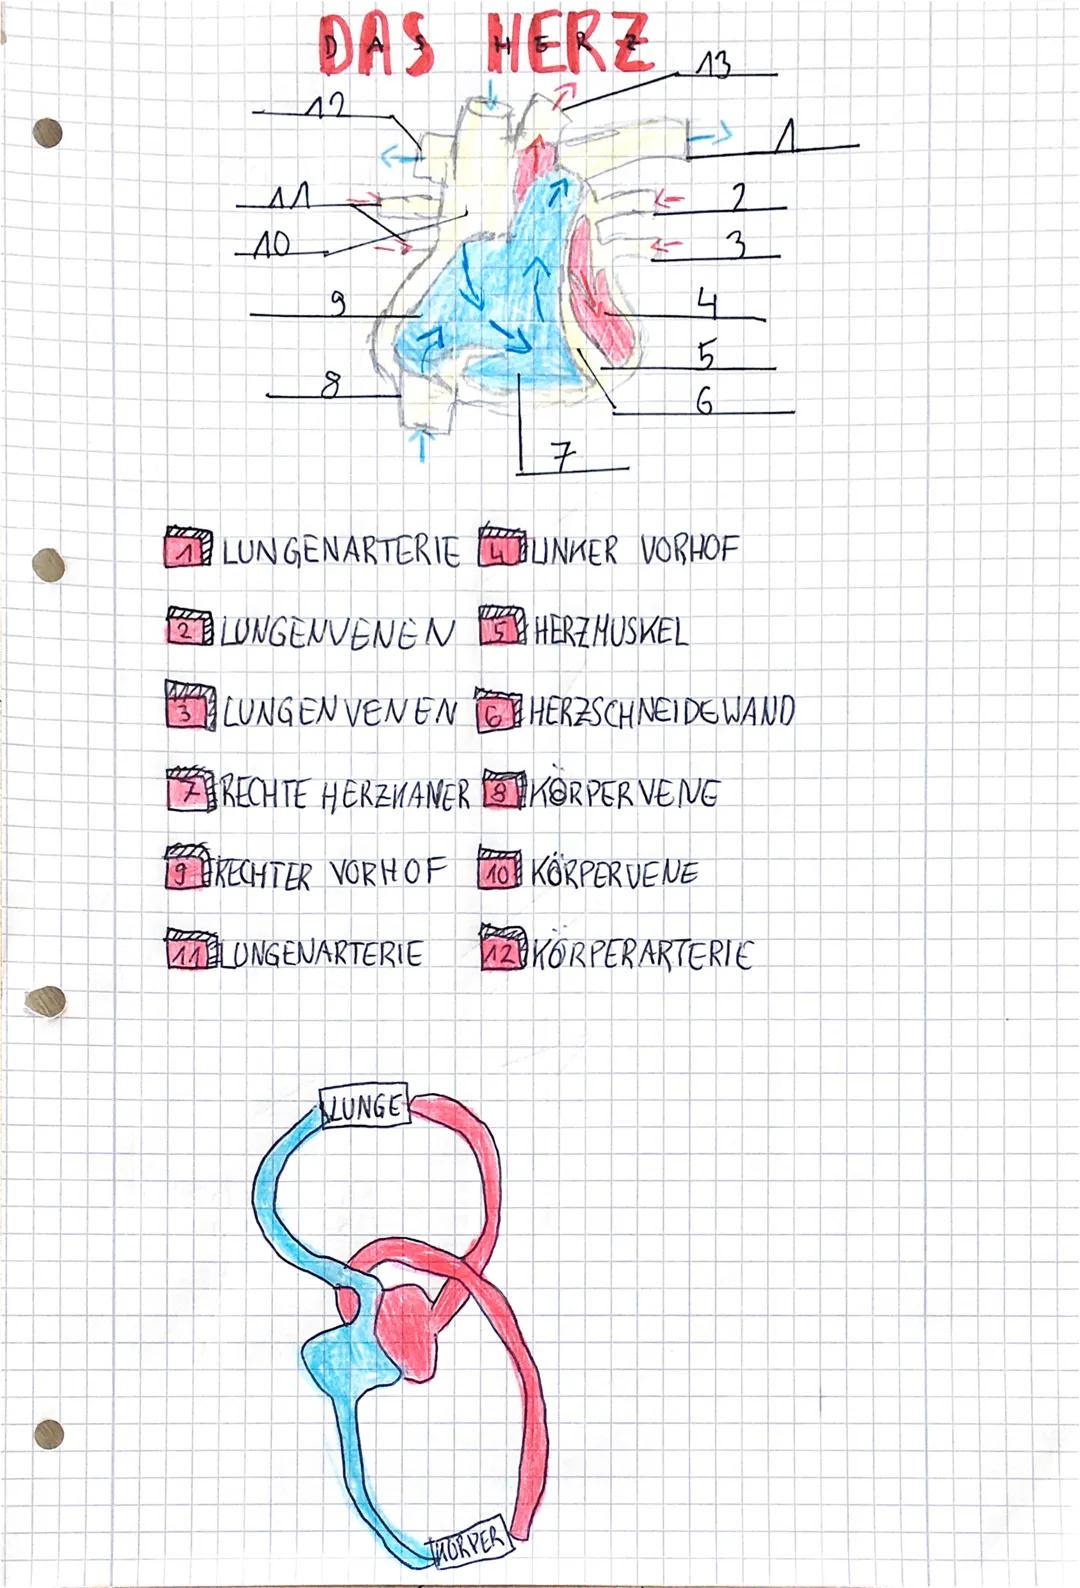 DAS HERZ
DAS HERZ
13
12
1
11
2
10
3
9
4
5
8
6
7
1 LUNGENARTERIE 4 LINKER VORHOF
2 LUNGENVENEN 5 HERZMUSKEL
3 LUNGENVENEN 6 HERZSCHNEIDEWAND
7 RECHTE HERZKAMER 8 KÖRPERVENE
9 RECHTER VORHOF 10 KÖRPERVENE
11 LUNGENARTERIE 12 KÖRPERARTERIE
LUNGE
KÖRPER